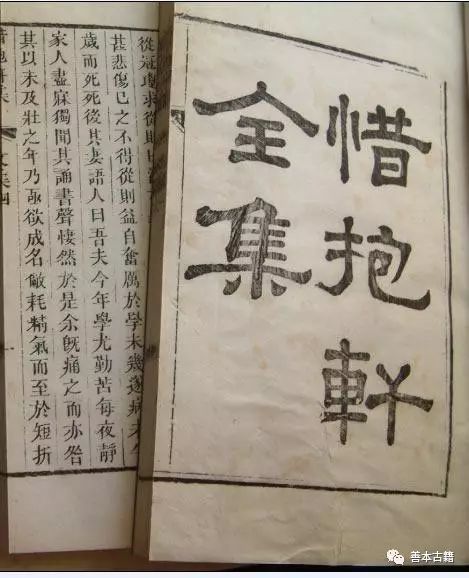 惜抱軒
全集
甚悲傷已之不得從則益自奮厲於學未幾遂病
歲而死死後其妻語人曰吾夫今年學尤勤苦每夜靜
家人盡寐獨聞其誦書聲悽然於是余既痛之而亦咎
其以未及壯之年乃亟欲成名敝耗精氣而至於短折
文集四
善本古籍